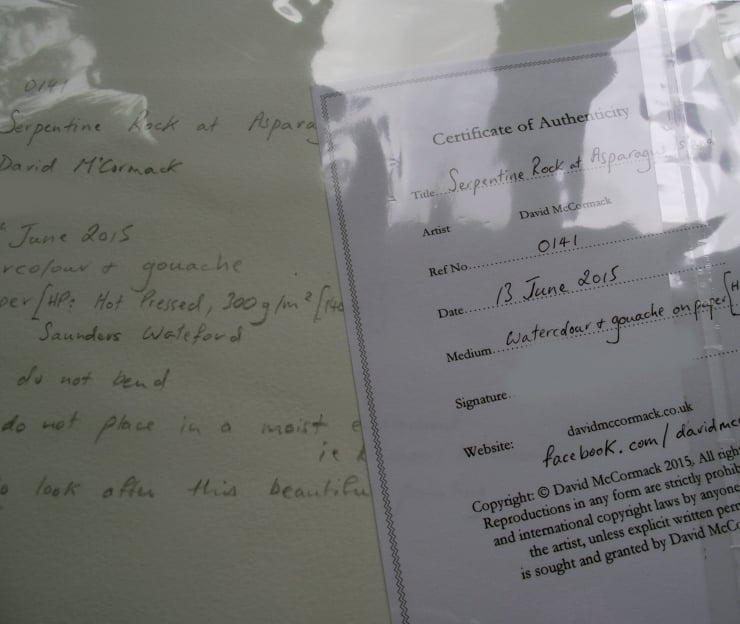 0141
Serpentine Rock at Aspara
David McCormack
June 2015
rcolour + gouache
per [HP: Hot Pressed, 300g/m² [140
Saunders Wateford
do not bend
do not place in a moist e
ie
look after this beautifu
Certificate of Authenticity
Title Serpentine Rock at Asparagus
Artist David McCormack
Ref No. 0141
Date 13 June 2015
Medium Watercolour + gouache on paper [H
Signature
Website: davidmccormack.co.uk
facebook.com/davidmc
Copyright: © David McCormack 2015. All righ
Reproductions in any form are strictly prohib
and international copyright laws by anyone
the artist, unless explicit written perm
is sought and granted by David McCo